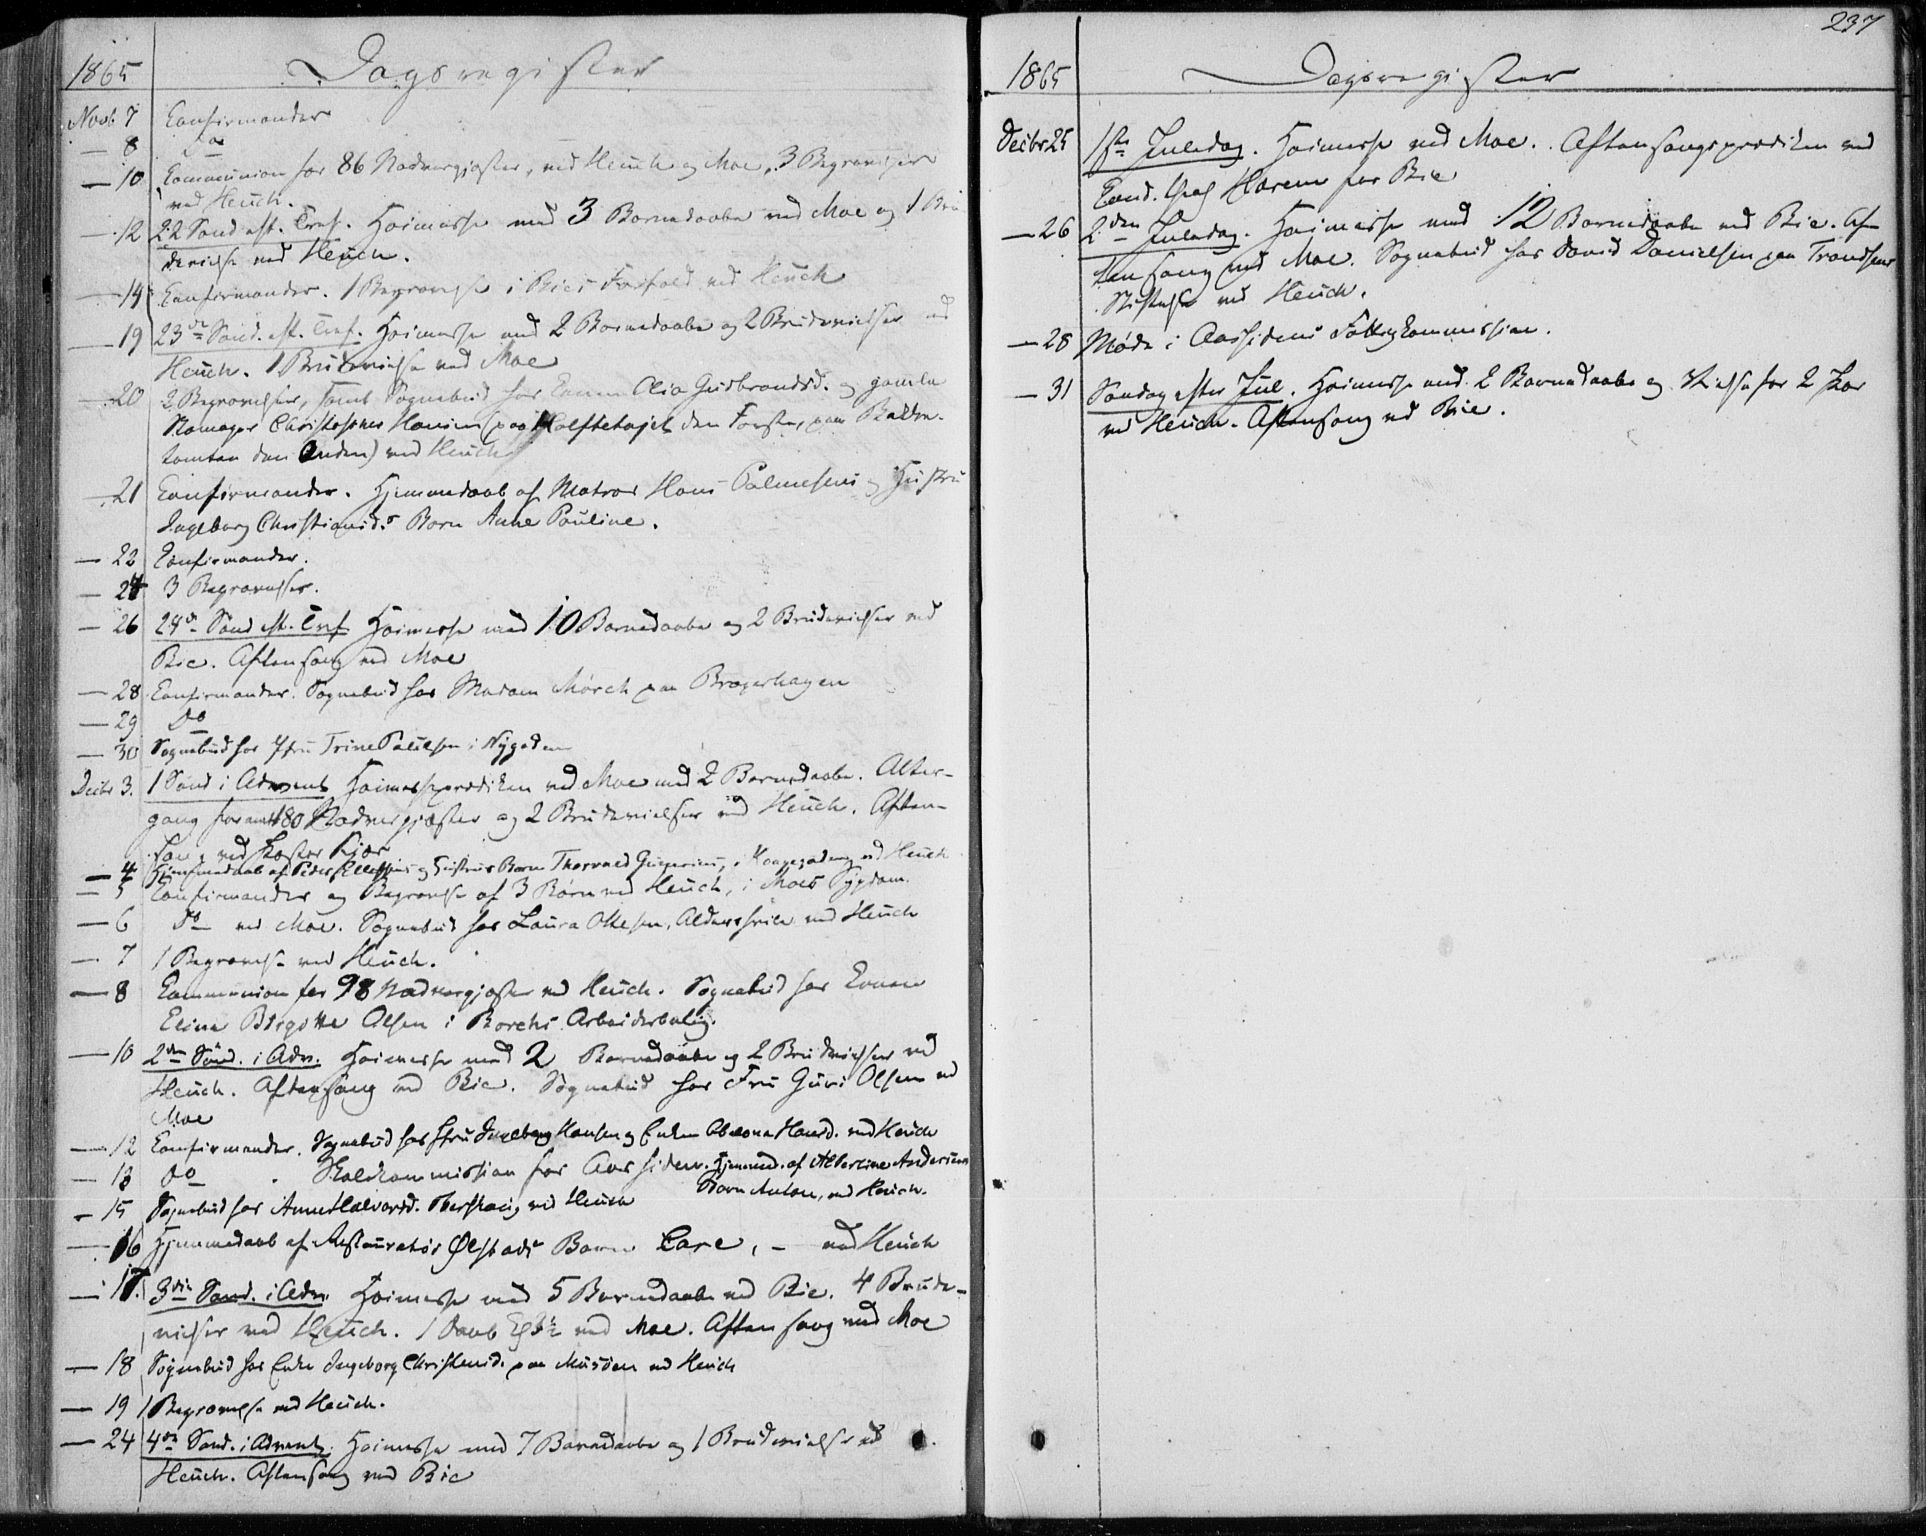 1865 Dagsregister
Novb 7 Confirmander
— 8 Do
— 10 Communion for 86 Nadvergjæster, ved Heuch og Moe. 3 Begravelser
ved Heuch.
— 12 22 Sønd eft. Tref. Høimesse med 3 Barnedaabe ved Moe og 1 Bru-
devielse ved Heuch.
— 14 Confirmander. 1 Begravelse i Bies Forfald ved Heuch
— 19 23de Sønd. eft. Tref. Høimesse med 2 Barnedaabe og 2 Brudevielser ved
Heuch. 1 Brudevielse ved Moe
— 20 2 Begravelser, samt Sognebud hos Konen Olia Gulbrandsd. og gamle
Christopher Hansen (paa den Første, paa
tomten den Anden) ved Heuch
— 21 Confirmander. Hjemmedaab af Matros Hans Palmesens og Hustru
Ingeborg Christiansd.s Barn Anne Pauline.
— 22 Confirmander.
— 24 3 Begravelser.
— 26 24de Sønd eft. Tref Høimesse med 10 Barnedaabe og 2 Brudevielser ved
Bie. Aftensang ved Moe
— 28 Confirmander. Sognebud hos Madam Mørch paa Bragerhagen
— 29 Do
— 30 Sognebud hos Jfru Trine Paulsen i Nygaden
Decbr 3. 1 Sønd i Advent Høimesseprædiken ved Moe med 2 Barnedaabe. Alter-
gang for omt 180 Nadvergjæster og 2 Brudevielser ved Heuch. Aften-
sang ved Kjær
— 4 Hjemmedaab af Peder Ellefsens og Hustrus Barn Thorvald, i Kongegaden, ved Heuch
— 5 Confirmander og Begravelse af 3 Børn ved Heuch, i Moes Sygdom.
— 6 Do ved Moe. Sognebud hos Laura Ottesen, Aldershvile ved Heuch
— 7 1 Begravelse ved Heuch.
— 8 Communion for 98 Nadvergjæster ved Heuch. Sognebud hos Konen
Eline Birgitte Olsen i Borchs Arbeiderbolig.
— 10 2den Sønd. i Adv. Høimesse med 2 Barnedaabe og 2 Brudevielser ved
Heuch. Aftensang ved Bie. Sognebud hos Fru Guri Olsen ved
Moe
— 12 Confirmander. Sognebud hos Jfru Ingeborg Hansen og Enken Hansd. ved Heuch
— 13 Do . Skolecommission for Aassiden. Hjemmed. af Albertine Andersens
Barn Anton, ved Heuch.
— 15 Sognebud hos Anne Halvorsd. ved Heuch
— 16 Hjemmedaab af Restauratør Ølstads Barn Care, – ved Heuch
— 17. 3die Sønd. i Adv. Høimesse med 5 Barnedaabe ved Bie. 4 Brude-
vielser ved Heuch. 1 Daab ved Moe. Aftensang ved Moe
— 18 Sognebud hos Enke Ingeborg Christensd. paa Muusøen ved Heuch
— 19 1 Begravelse ved Heuch.
— 24 4de Sønd. i Advent. Høimesse med 7 Barnedaabe og 1 Brudevielse ved
Heuch. Aftensang ved Bie
237
1865 Dagsregister
Decbr 25 1ste Juledag. Høimesse ved Moe. Aftensangsprædiken ved
Cand. theol Harem for Bie
— 26 2den Juledag. Høimesse med 12 Barnedaabe ved Bie. Af-
tensang ved Moe. Sognebud hos David Danielsen paa Trondsens
Stiftelse ved Heuch.
— 28 Møde i Aassidens Fattigkommission.
— 31 Søndag efter Jul. Høimesse med 2 Barnedaabe og Vielse for 2 Par
ved Heuch. Aftensang ved Bie.